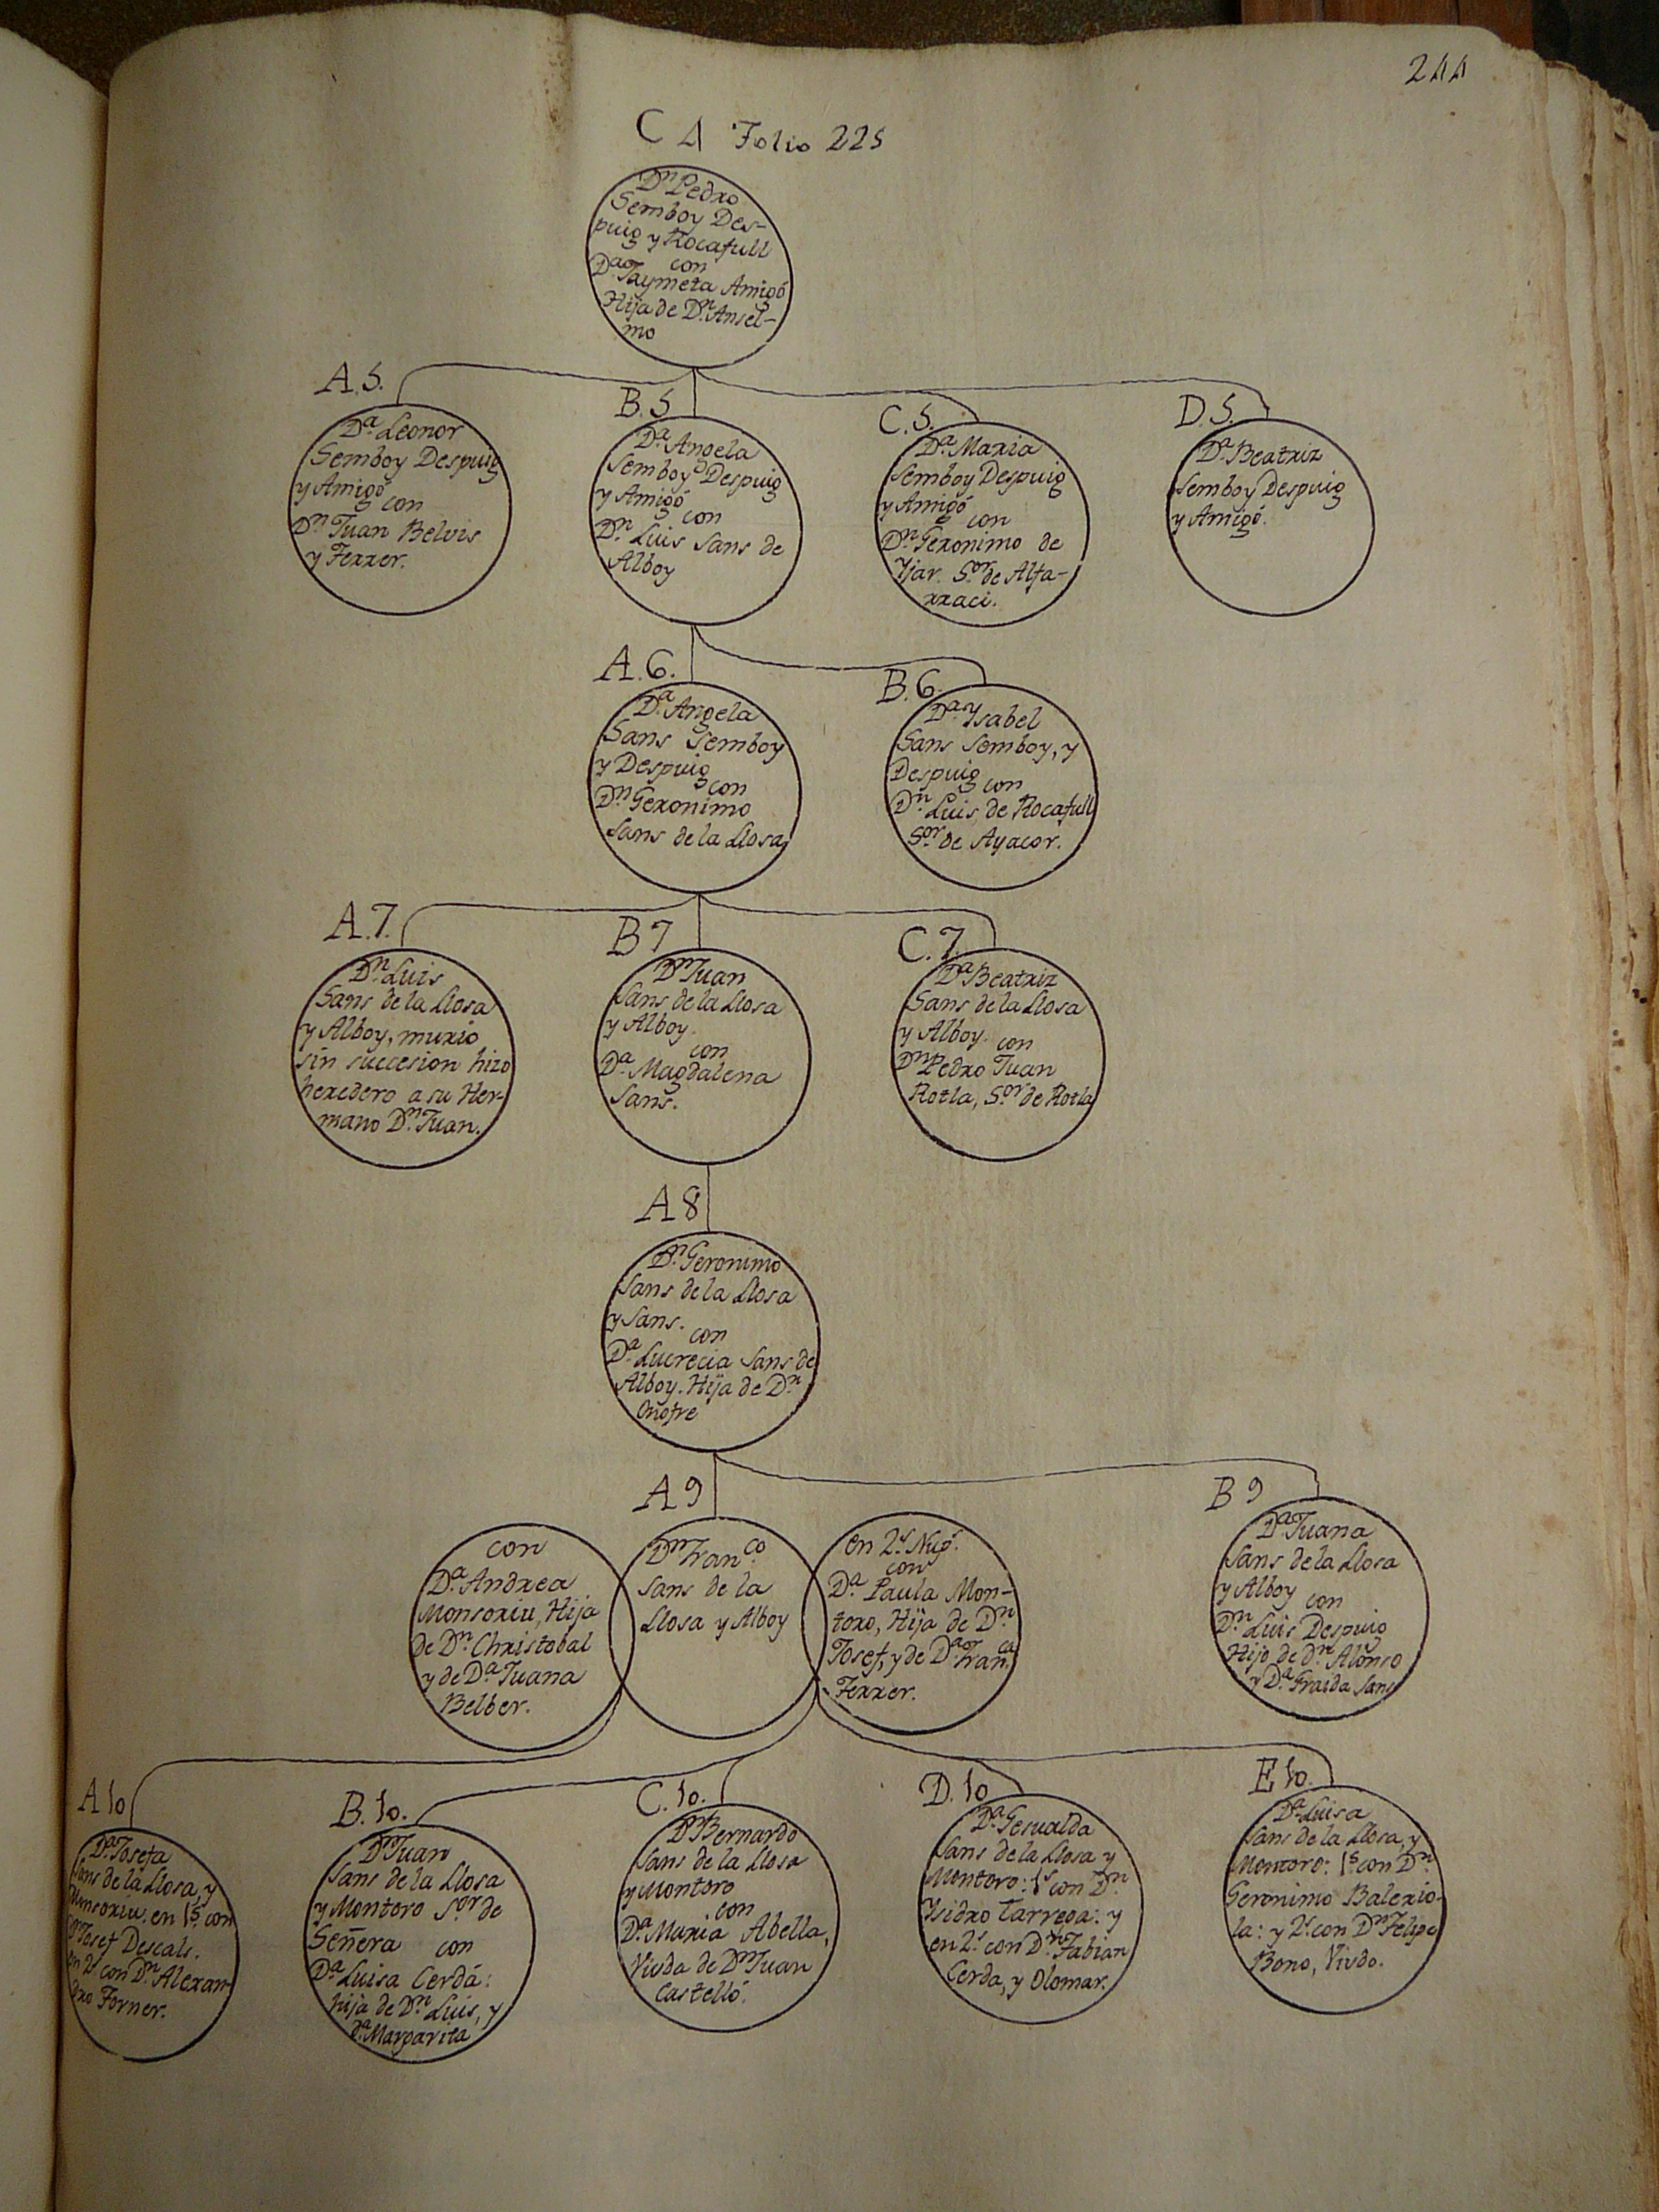 244
C 4 Folio 225
Dn. Pedro
Semboy Des-
puig y Rocafull
con
Da. Jaymeta Amigó
Hija de Dn. Ansel-
mo
A.5.
Da. Leonor
Semboy Despuig
y Amigó
con
Dn. Juan Belvis
y Ferrer.
B.5
Da. Angela
Semboy Despuig
y Amigó
con
Dn. Luis Sans de
Alboy
C.5.
Da. Maria
Semboy Despuig
y Amigó
con
Dn. Geronimo de
Yjar. Sor. de Alfa-
rraci.
D.5.
Da. Beatriz
Semboy Despuig
y Amigó.
A.6.
Da. Angela
Sans Semboy
y Despuig
con
Dn. Geronimo
Sans de la Llosa
B.6.
Da. Ysabel
Sans Semboy, y
Despuig
con
Dn. Luis de Rocafull
Sor. de Ayacor.
A.7.
Dn. Luis
Sans de la Llosa
y Alboy, murio
sin succesion hizo
heredero a su Her-
mano Dn. Juan.
B 7
Dn. Juan
Sans de la Llosa
y Alboy.
con
Da. Magdalena
Sans.
C.7.
Da. Beatriz
Sans de la Llosa
y Alboy. con
Dn. Pedro Juan
Rotla, Sor. de Rotla
A 8
Dn. Geronimo
Sans de la Llosa
y Sans.
con
Da. Lucrecia Sans de
Alboy. Hija de Dn.
Onofre
A 9
con
Da. Andrea
Monsoriu, Hija
de Dn. Christobal
y de Da. Juana
Belber.
Dn. Franco.
Sans de la
Llosa y Alboy
en 2s. Nups.
con
Da. Paula Mon-
toro, Hija de Dn.
Josef, y de Da. Franca.
Ferrer.
B 9
Da. Juana
Sans de la Llosa
y Alboy con
Dn. Luis Despuig
Hijo de Dn. Alonso
y Da. Graida Sans
A 10
Da. Josefa
Sans de la Llosa, y
Monsoriu. en 1s. con
Dn. Josef Descals.
en 2s. con Dn. Alexan-
dro Forner.
B.10.
Dn. Juan
Sans de la Llosa
y Montoro Sor. de
Señera con
Da. Luisa Cerdá:
hija de Dn. Luis, y
Da. Margarita
C.10.
Dn. Bernardo
Sans de la Llosa
y Montoro
con
Da. Maria Abella,
Viuda de Dn. Juan
Castelló.
D.10
Da. Gesualda
Sans de la Llosa y
Montoro: 1s. con Dn.
Ysidro Tarrega: y
en 2s. con Dn. Fabian
Cerda, y Olomar.
E 10.
Da. Luisa
Sans de la Llosa, y
Montoro: 1s. con Dn.
Geronimo Balerio-
la: y 2s. con Dn. Felipe
Bono, Viudo.